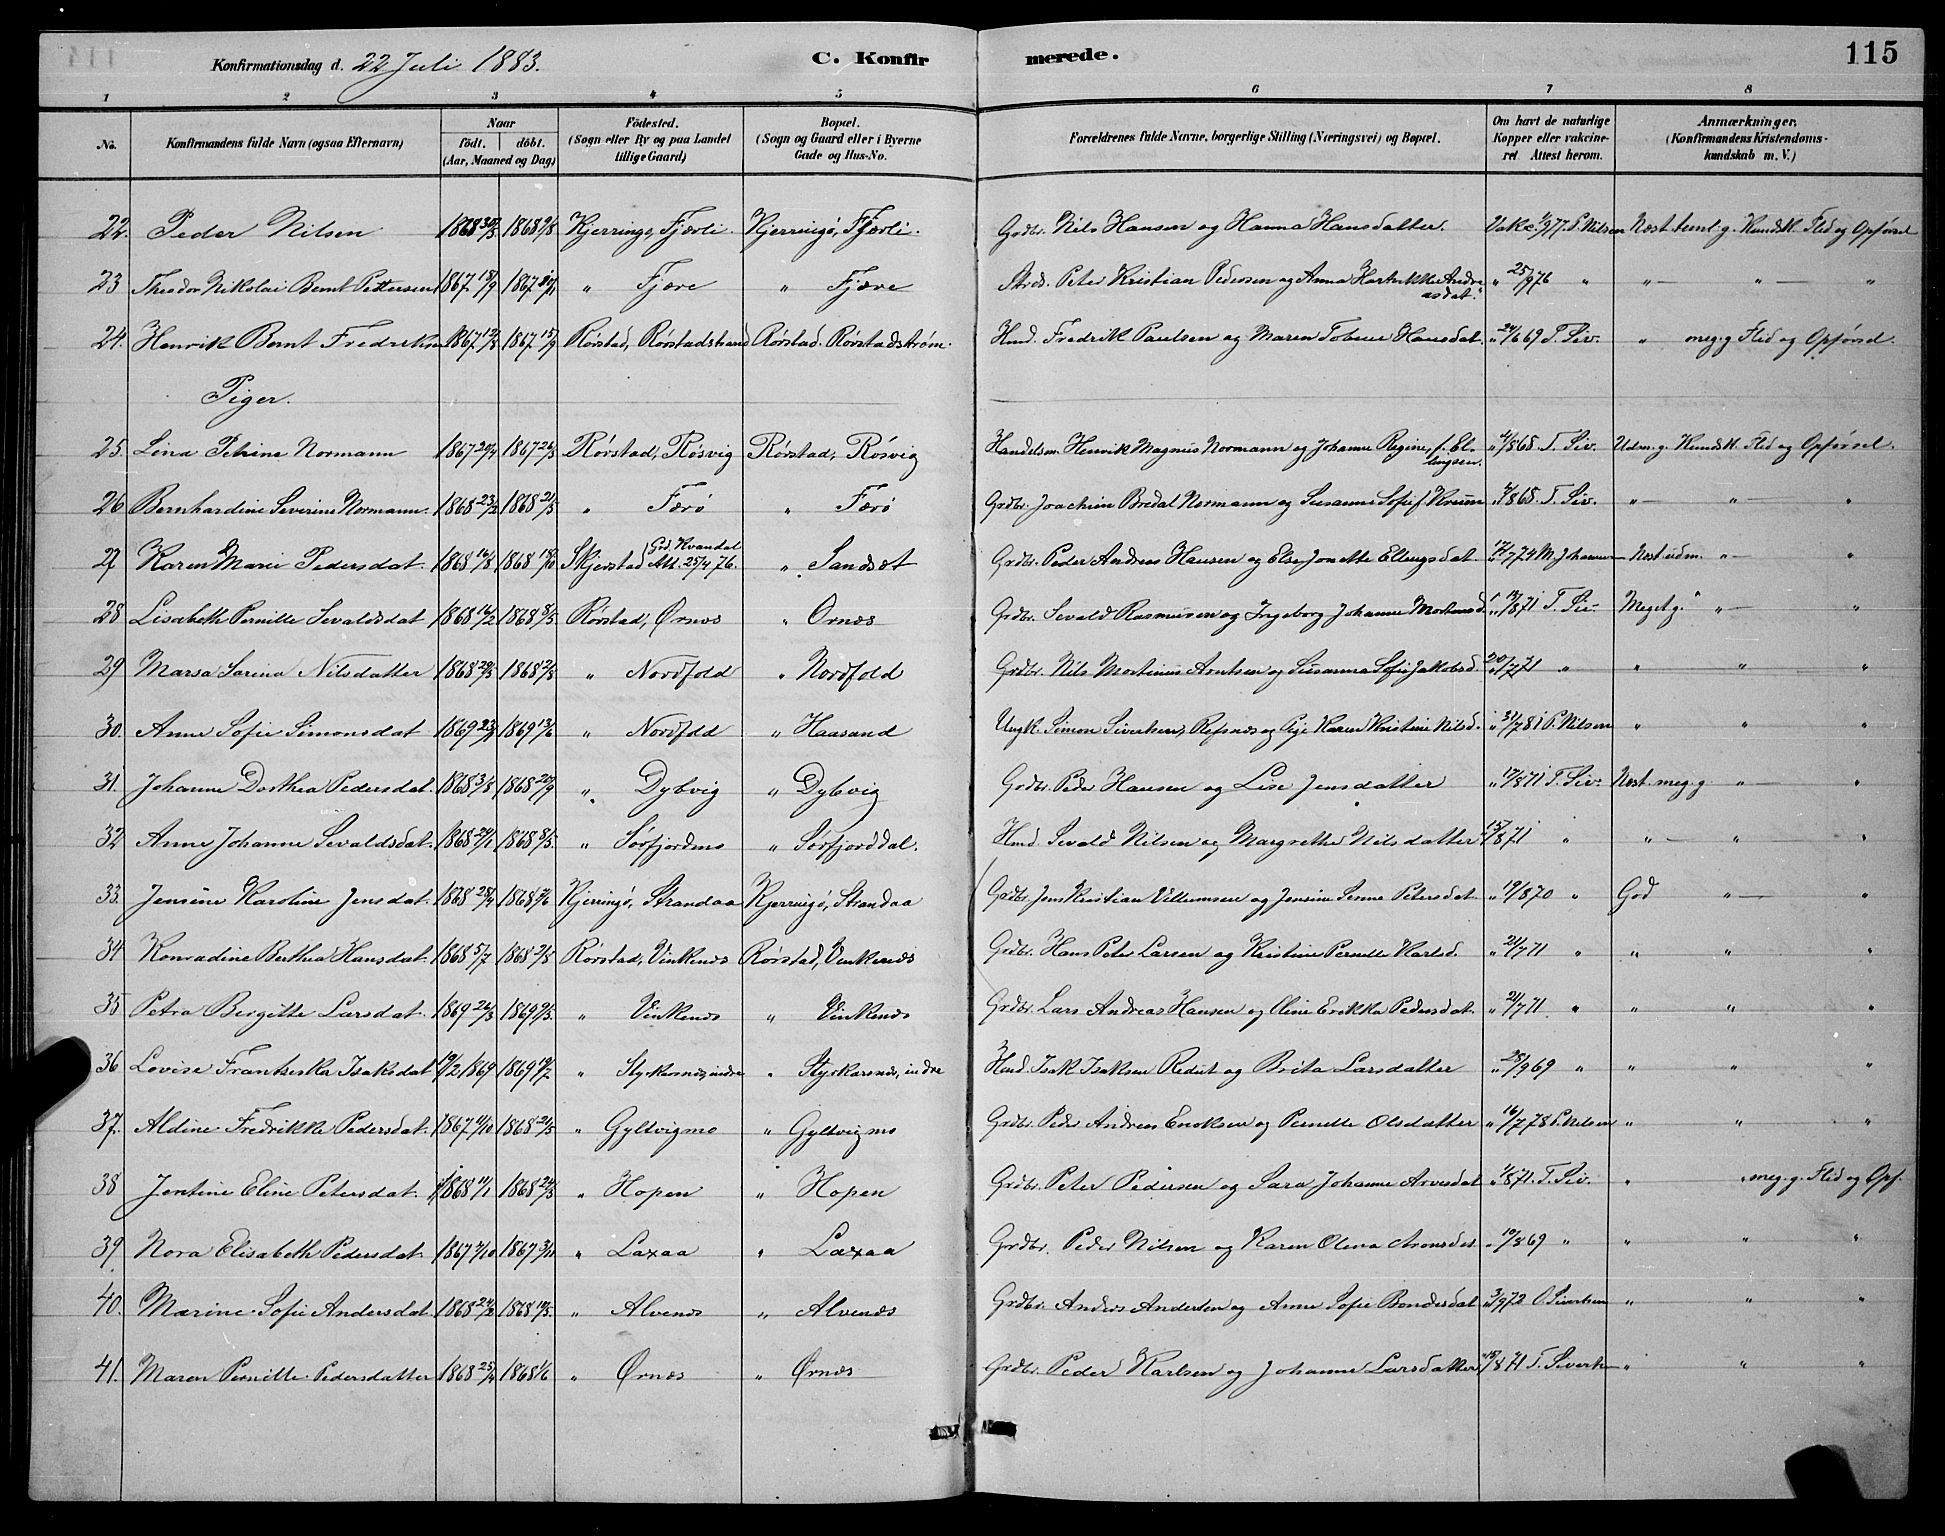 Konfirmationsdag d. 22 Juli 1883. C. Konfirmerede. 115
1 2 3 4 5 6 7 8
No. Konfirmandens fulde Navn (ogsaa Efternavn) Naar født. døbt. (Aar, Maaned og Dag) Fødested. (Sogn eller By og paa Landet tillige Gaard) Bopæl. (Sogn og Gaard eller i Byerne Gade og Hus-No. Forældrenes fulde Navne, borgerlige Stilling (Næringsvei) og Bopæl. Om havt de naturlige Kopper eller vakcineret Attest herom. Anmærkninger. (Konfirmandens Kristendomskundskab m. V.)
22. Peder Nilsen 1868 1868 Kjerringø, Fjærli. Kjerringø, Fjærli. Gdbr. Nils Hansen og Hanna Hansdatter. Vakc. P. Nilsen Næst teml. g. Kundsk. Flid og Opførsel
23 Theodor Nikolai Bernt Pettersen 1867 18/9 1867 " Fjære " Fjære Peter Kristian Pedersen og Anna Andreasdat. " 25/9 76 " " — " — "
24. Henrik Bernt Fredriksen 1867 1867 15/9 Rørstad, Rørstadstrand Rørstad. Rørstadstrøm. Hmd. Fredrik Paulsen og Maren Hansdat. " 69 T. Siv. " meg. g Flid og Opførsel.
Piger.
25. Lina Petrine Normann 1867 1867 Rørstad, Røsvig Rørstad, Røsvig Handelsm. Henrik Magnus Normann og Johanne Regine, f. Ellingsen. " 68. T. Siv. Udm. g. Kundsk. Flid og Opførsel.
26 Bernhardine Severine Normann. 1868 23/2 1868 21/5 " Færø " Færø Grdbr. Joachim Bredal Normann og Susanna Sofie f. " 68. T. Siv. " — " — "
27 Karen Marie Pedersdat. 1868 16/8 1868 18/10 Skjerstad Grd. Kvandal Att. 25/4 76. " Sandsæt Grdbr. Peder Andreas Hansen og Else Jonette Ellingsdat. " 17/7 74 M. Johansen Næst udm. " — "
28 Lisabeth Pernille Sevaldsdat 1868 16/2 1868 8/5 Rørstad, Ørnæs " Ornæs Grdbr. Sevald Rasmussen og Ingeborg Johanne " /8 71 T. Siv Meget g. " — "
29 Marsa Sarina Nilsdatter 1868 1868 " Nordfold " Nordfold Grdbr. Nils Martinus Arntsen og Susanna Sofie Jakobsd. 20/7 71 " " " "
30. Anne Sofie Simonsdat 1869 1869 13/6 " Nordfold " Haasand Ungk. Simon Sivertsen, Refsnæs og Pige Karen Kristine Nilsd. " /7 81 P. Nilsen " " "
31. Johanne Dorthea Pedersdat. 1868 3/8 1868 20/9 " Dybvig " Dybvig Grdbr. Peder Hansen og Lise Jensdatter " 17/8 71 T. Siv. Næst. meg. g. " — "
32 Anne Johanne Sevaldsdat. 1868 1868 8/5. " Sørfjordmo " Sørfjorddal. Hmd. Sevald Nilsen og Margrethe Nilsdatter 15/8 71 " " — " "
33. Jensine Karoline Jensdat. 1868 1868 Kjerringø, Strandaa Kjerringø, Strandaa Grdbr. Jens Kristian Villumsen og Jensine Petersdat. " 19/8 70 " God " — "
34 Konradine Berthea Hansdat. 1868 5/7 1868 Rørstad, Vinkenæs Rørstad, Vinkenæs Grdbr. Hans Peter Larsen og Kristine Pernille Karlsd. " 21/7 71 " " " "
35 Petra Birgitte Larsdat. 1869 1869 " Vinkenæs " Vinkenæs Grdbr. Lars Andreas Hansen og Oline Erikka Pedersdat. " 21/7 71. " " " "
36 Lovise Frantseska Isaksdat 19/2 1869 1869 " Styrkesnæs, indre " Styrkesnæs, indre Hmd Isak Isaksen og Brita Larsdatter " 28/9 69 " " " "
37. Aldine Fredrikke Pedersdat. 1867 1868 21/5 " Gyltvigmo " Gyltvigmo Grdbr. Peder Andreas Enoksen og Pernille Olsdatter " 16/7 78 P. Nilsen " " "
38 Jentine Eline Petersdat. 1868 11/1 1868 24/5 " Hopen " Hopen Grdbr. Peter Pedersen og Sara Johanne Arvesdat " /8 71. T. Siv. " " meg. g. Flid og Opf.
39. Nora Elisabeth Pedersdat. 1867 1867 " Laxaa " Laxaa Grdbr. Peder Nilsen og Karen Olena Aronsdat " 10/8 69 " " " "
40. Marine Sofie Andersdat. 1868 1868 " Alvenæs " Alvenæs Grdbr. Anders Andersen og Anne Sofie " 3/9 72 O. Sivertsen " " "
41. Maren Pernille Pedersdatter 1868 25/4 1868 1/6 " Ørnæs " Ørnæs Grdbr. Peder Karlsen og Johanne Larsdatter " /8 71 T. Sivertsen " " "